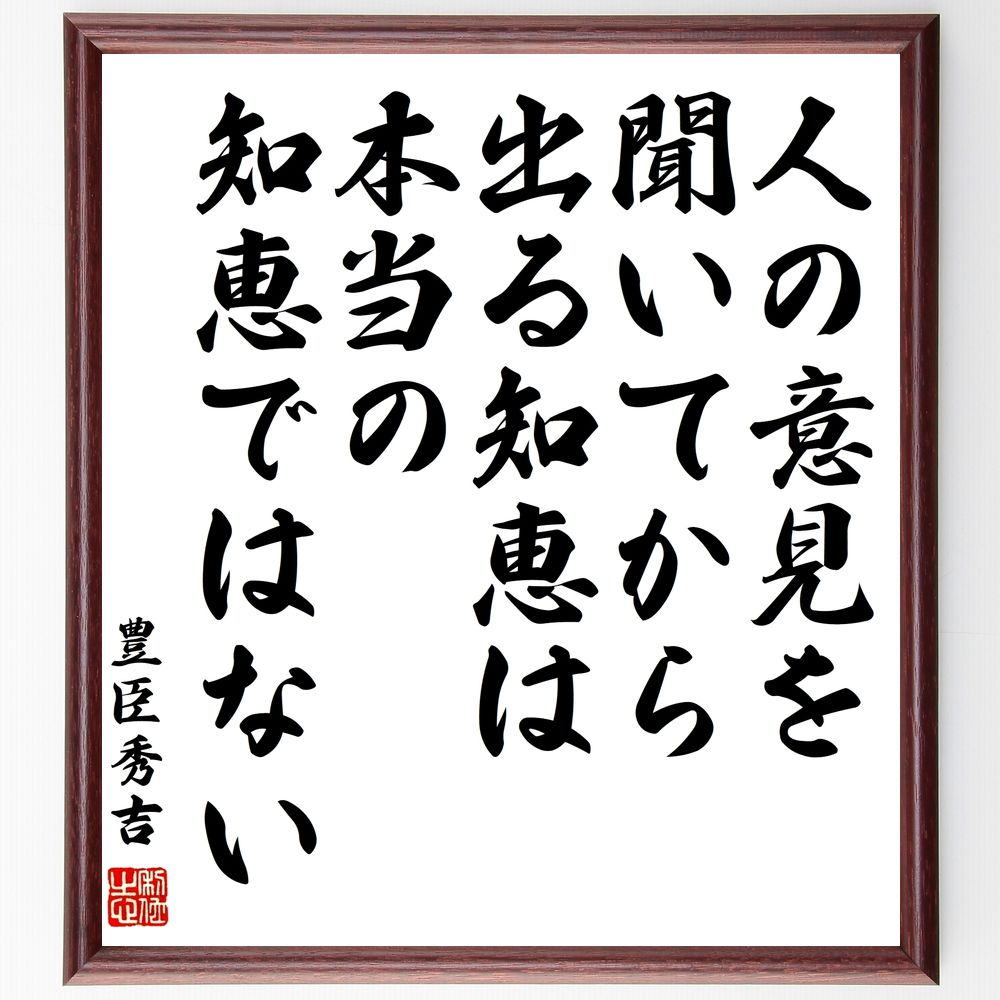 人の意見を
聞いてから
出る知恵は
本当の
知恵ではない
豊臣秀吉